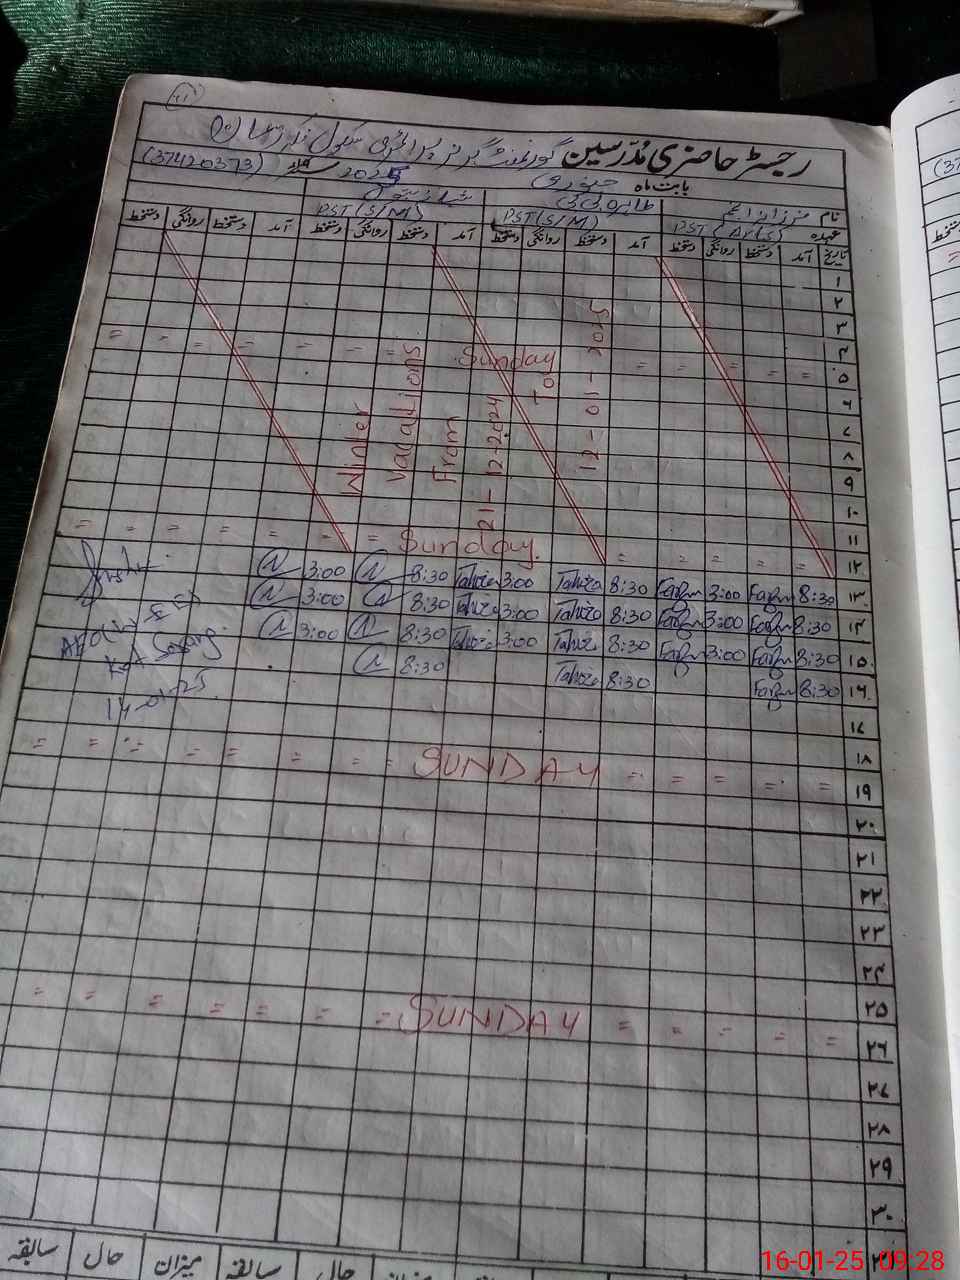 رجسٹر حاضری مُدرّسین گورنمنٹ گرلز پرائمری سکول
بابت ماہ جنوری 2025 (37420373)
نام
عہدہ PST PST(S/M) PST(S/M)
تاریخ آمد دستخط روانگی دستخط آمد دستخط روانگی دستخط آمد دستخط روانگی دستخط آمد دستخط روانگی دستخط
۱
۲
۳
۴
Sunday
۵
۶
۷
۸
۹
۱۰
۱۱
Sunday.
۱۲
Winter
Vacations
From
21-12-2024
To
12-01-2025
۱۳ 8:30 3:00 8:30 Tahira 3:00 Tahira 8:30 3:00
۱۴ 8:30 3:00 8:30 Tahira 3:00 Tahira 8:30 3:00
۱۵ 8:30 3:00 8:30 Tahira 3:00 Tahira 8:30 3:00
۱۶ 8:30 8:30 Tahira 8:30
14-01-25
۱۷
۱۸
SUNDAY
۱۹
۲۰
۲۱
۲۲
۲۳
۲۴
۲۵
SUNDAY
۲۶
۲۷
۲۸
۲۹
۳۰
سابقہ حال میزان سابقہ حال
16-01-25 09:28